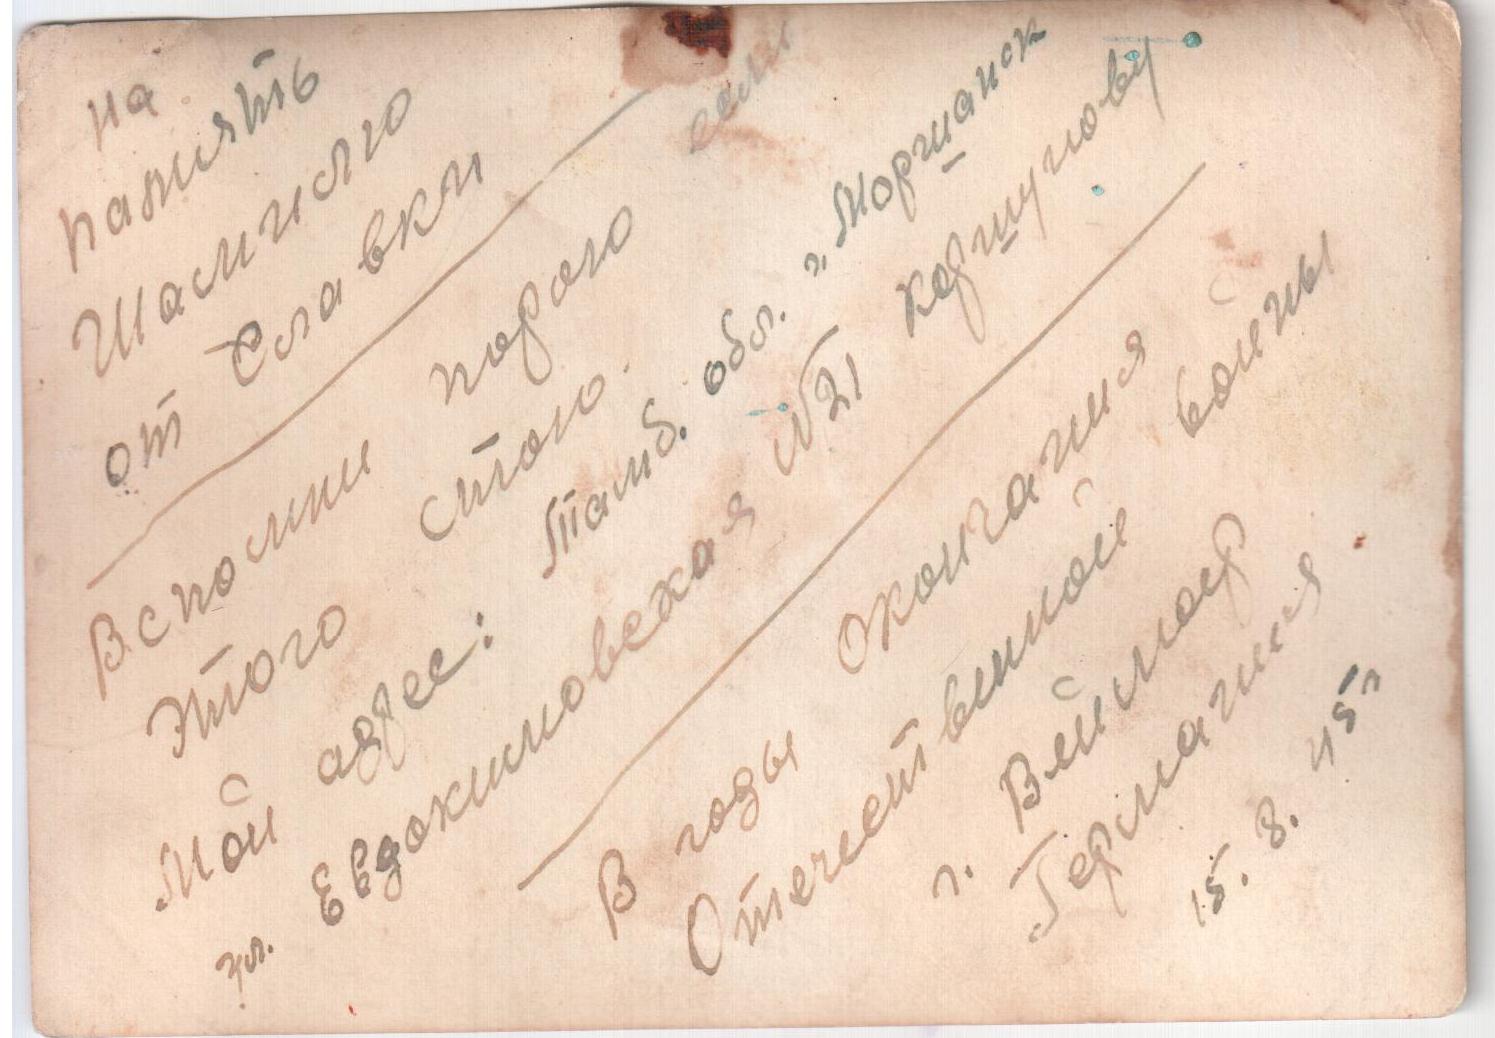 на
память
от Славки
Вспомни порою если
этого стою.
Мой адрес: Тамб. обл. г. Моршанск
ул. Евдокимовская №21 Коршунову
В годы окончания
Отечественной войны
г. Веймар
Германия
15. 8. 45г